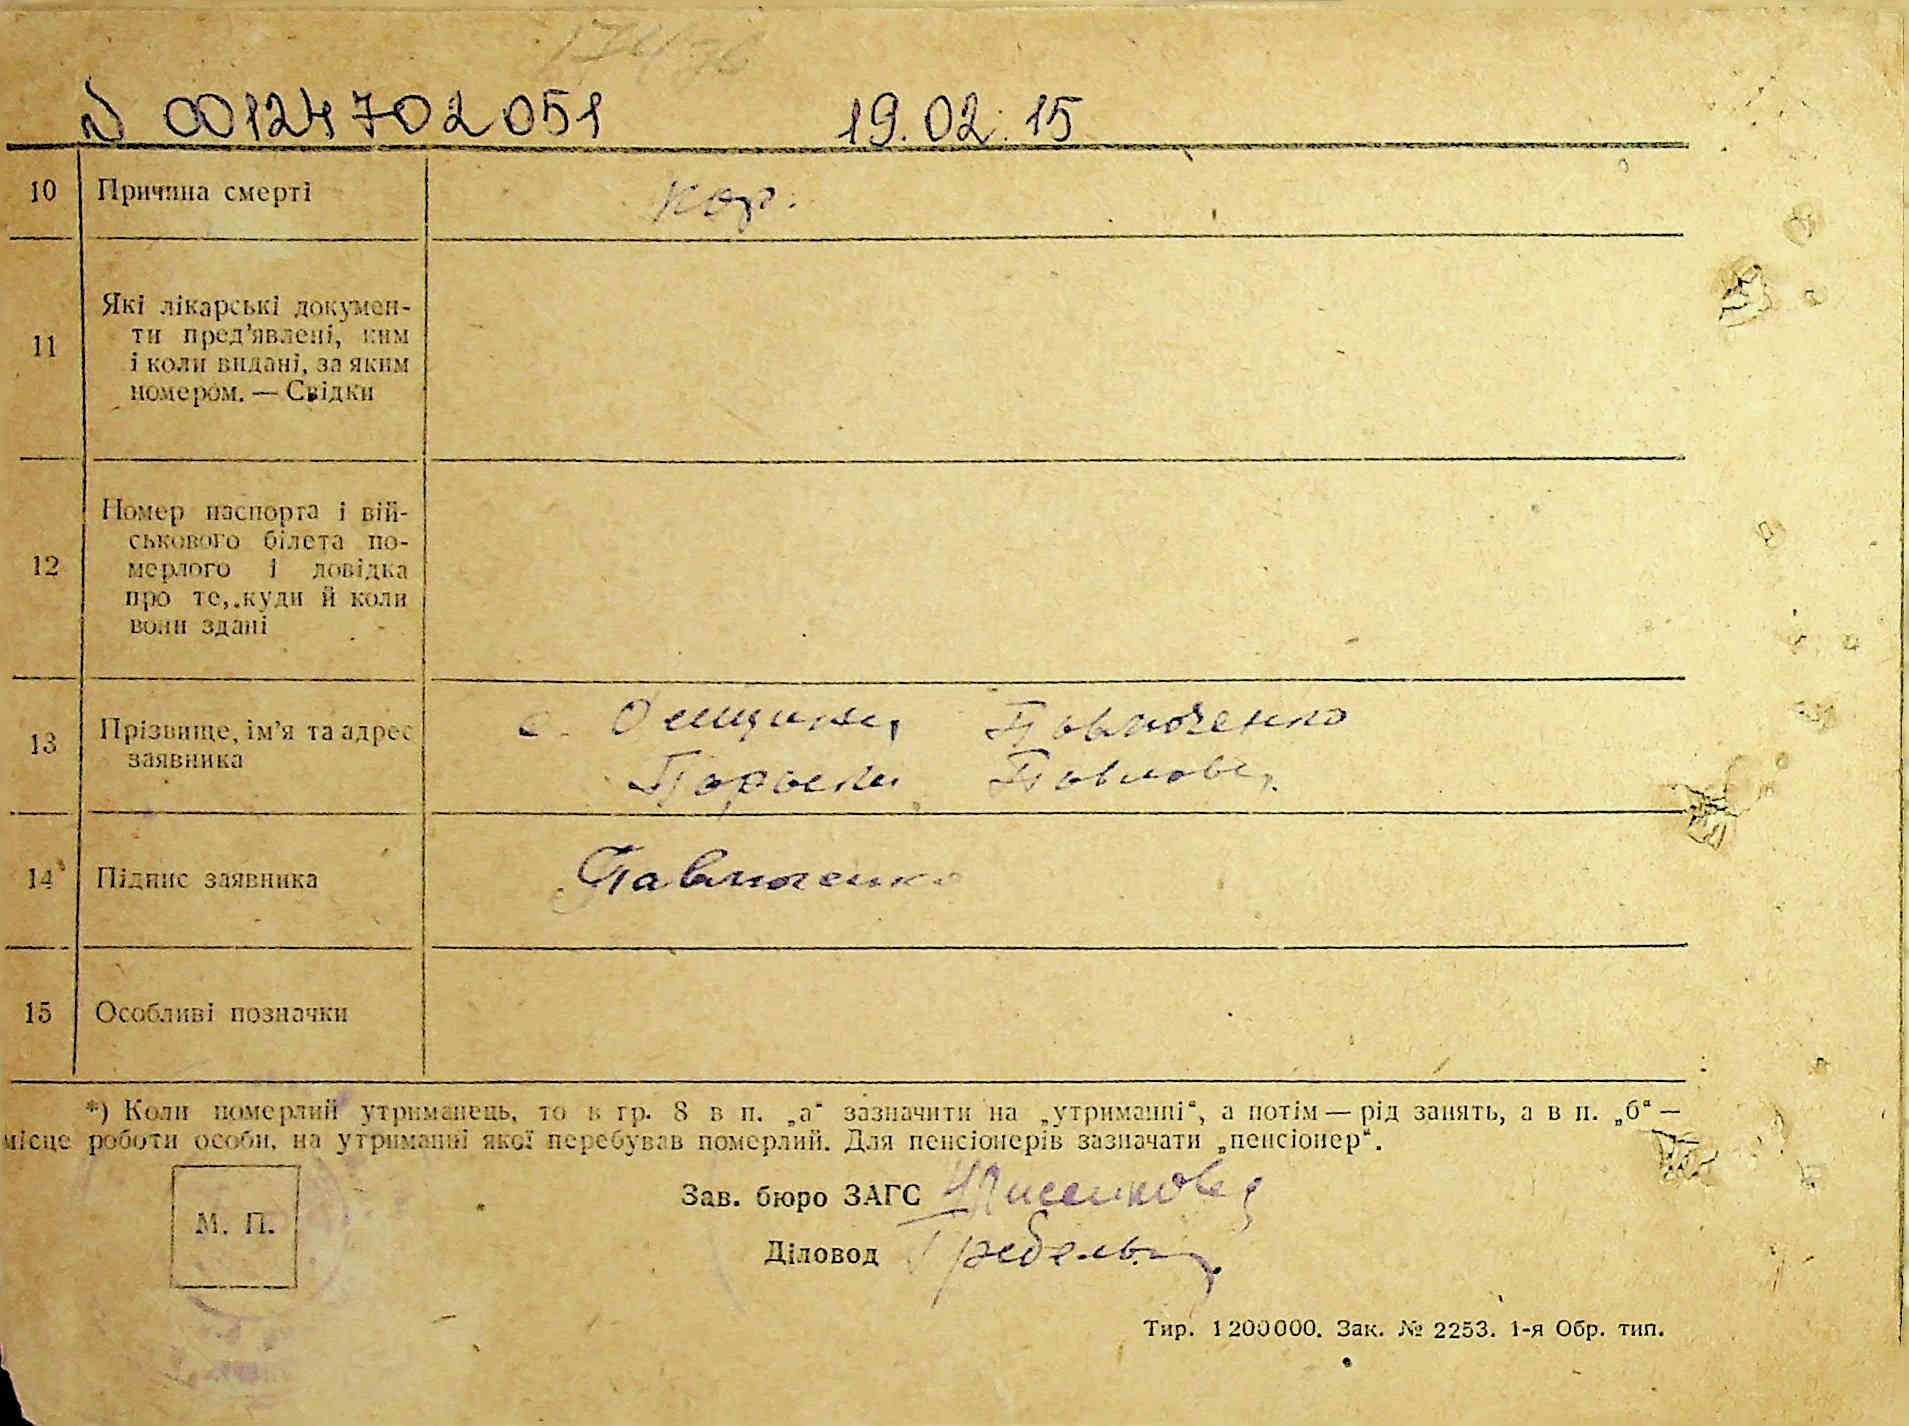 № 00124702051 19.02.15
10 Причина смерті кор.
11 Які лікарські докумен-
ти пред'явлені, ким
і коли видані, за яким
номером. — Свідки
12 Номер паспорта і вій-
ськового білета по-
мерлого і довідка
про те, куди й коли
вони здані
13 Прізвище, ім'я та адрес
заявника
с. Павлюченко
14 Підпис заявника Павлюченко
15 Особливі позначки
*) Коли померлий утриманець, то в гр. 8 в п. „а“ зазначити на „утриманні“, а потім — рід занять, а в п. „б“ —
місце роботи особи, на утриманні якої перебував померлий. Для пенсіонерів зазначати „пенсіонер“.
М. П.
Зав. бюро ЗАГС
Діловод
Тир. 1200000. Зак. № 2253. 1-я Обр. тип.